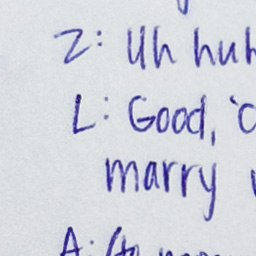 Z: Uh huh
L: Good, 'c
marry
A: